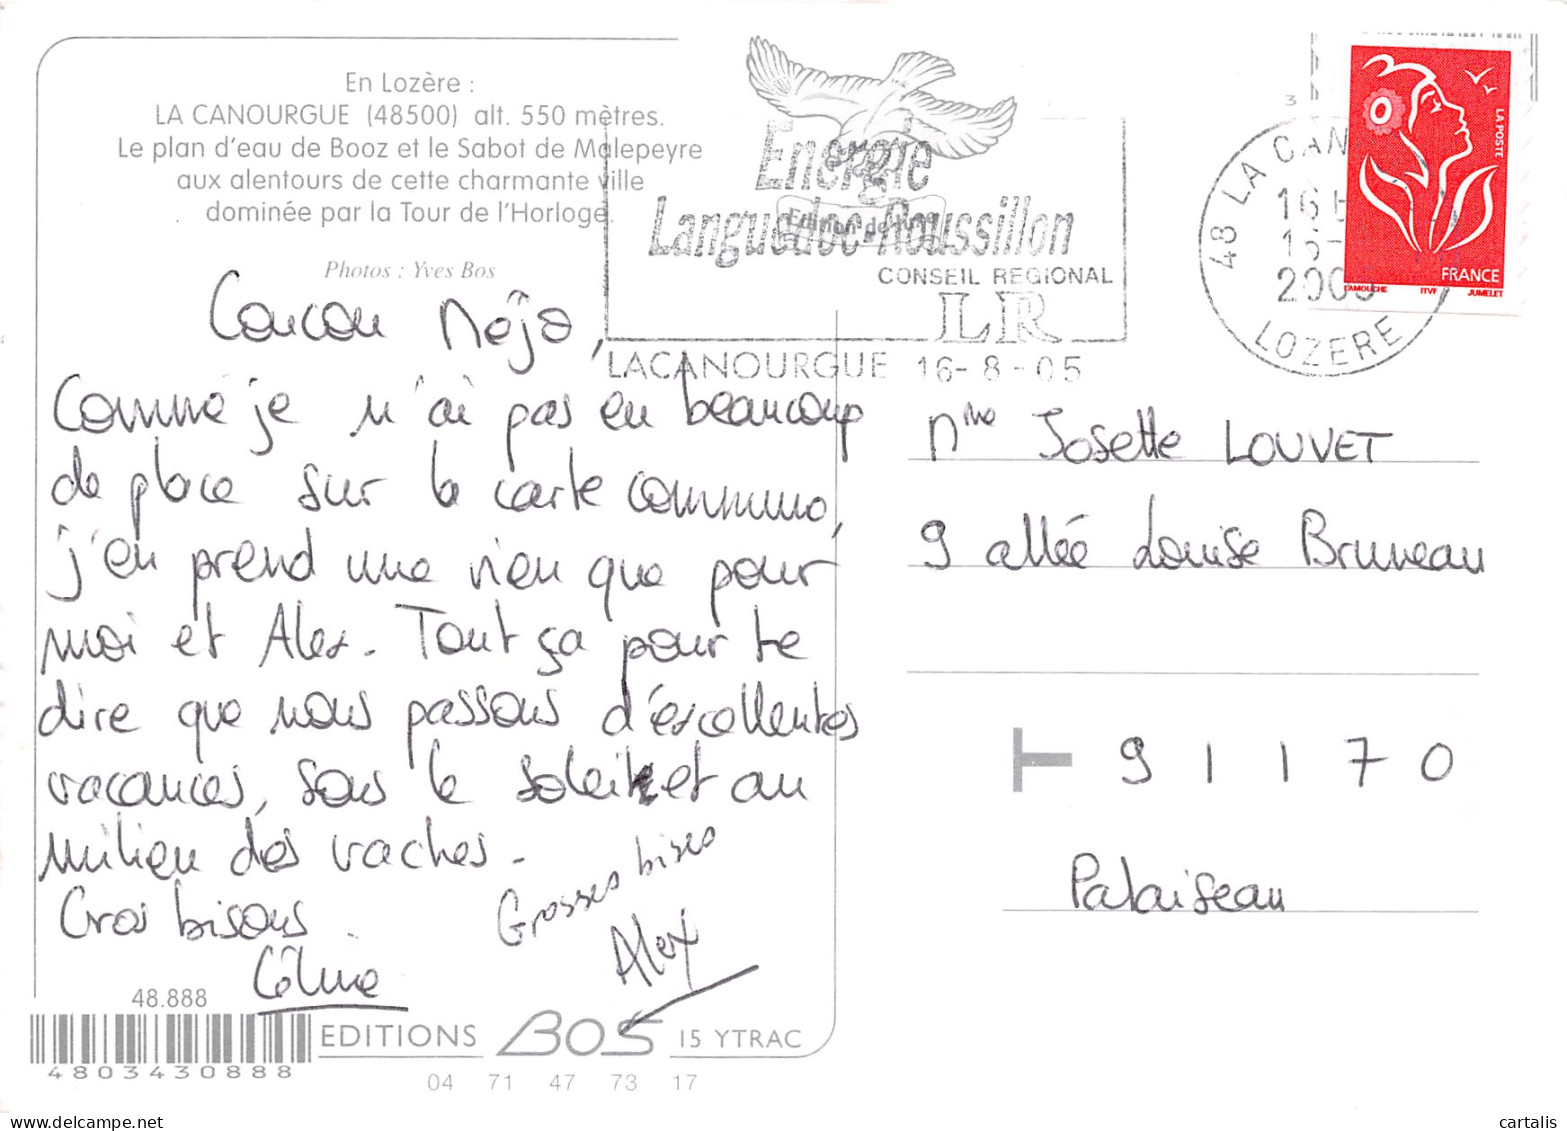 En Lozère :
LA CANOURGUE (48500) alt. 550 mètres.
Le plan d'eau de Booz et le Sabot de Malepeyre
aux alentours de cette charmante ville
dominée par la Tour de l'Horloge.
Photos : Yves Bos
Energie
Languedoc-Roussillon
CONSEIL REGIONAL
LR
LACANOURGUE 16-8-05
48 LA CAN
16
16-
200
LOZERE
LA POSTE
FRANCE
LAMOUCHE ITVF JUMELET
Coucou
Comme je n'ai pas eu beaucoup
de place sur la carte commune,
j'en prend une rien que pour
moi et Alex. Tout ça pour te
dire que nous passons d'excellentes
vacances, sous le soleil et au
milieu des vaches.
Gros bisous.
Céline
Grosses bises
Alex
Mme Josette LOUVET
9 allée Louise Bruneau
91170
Palaiseau
48.888
4803430888
EDITIONS BOS 15 YTRAC
04 71 47 73 17
cartalis